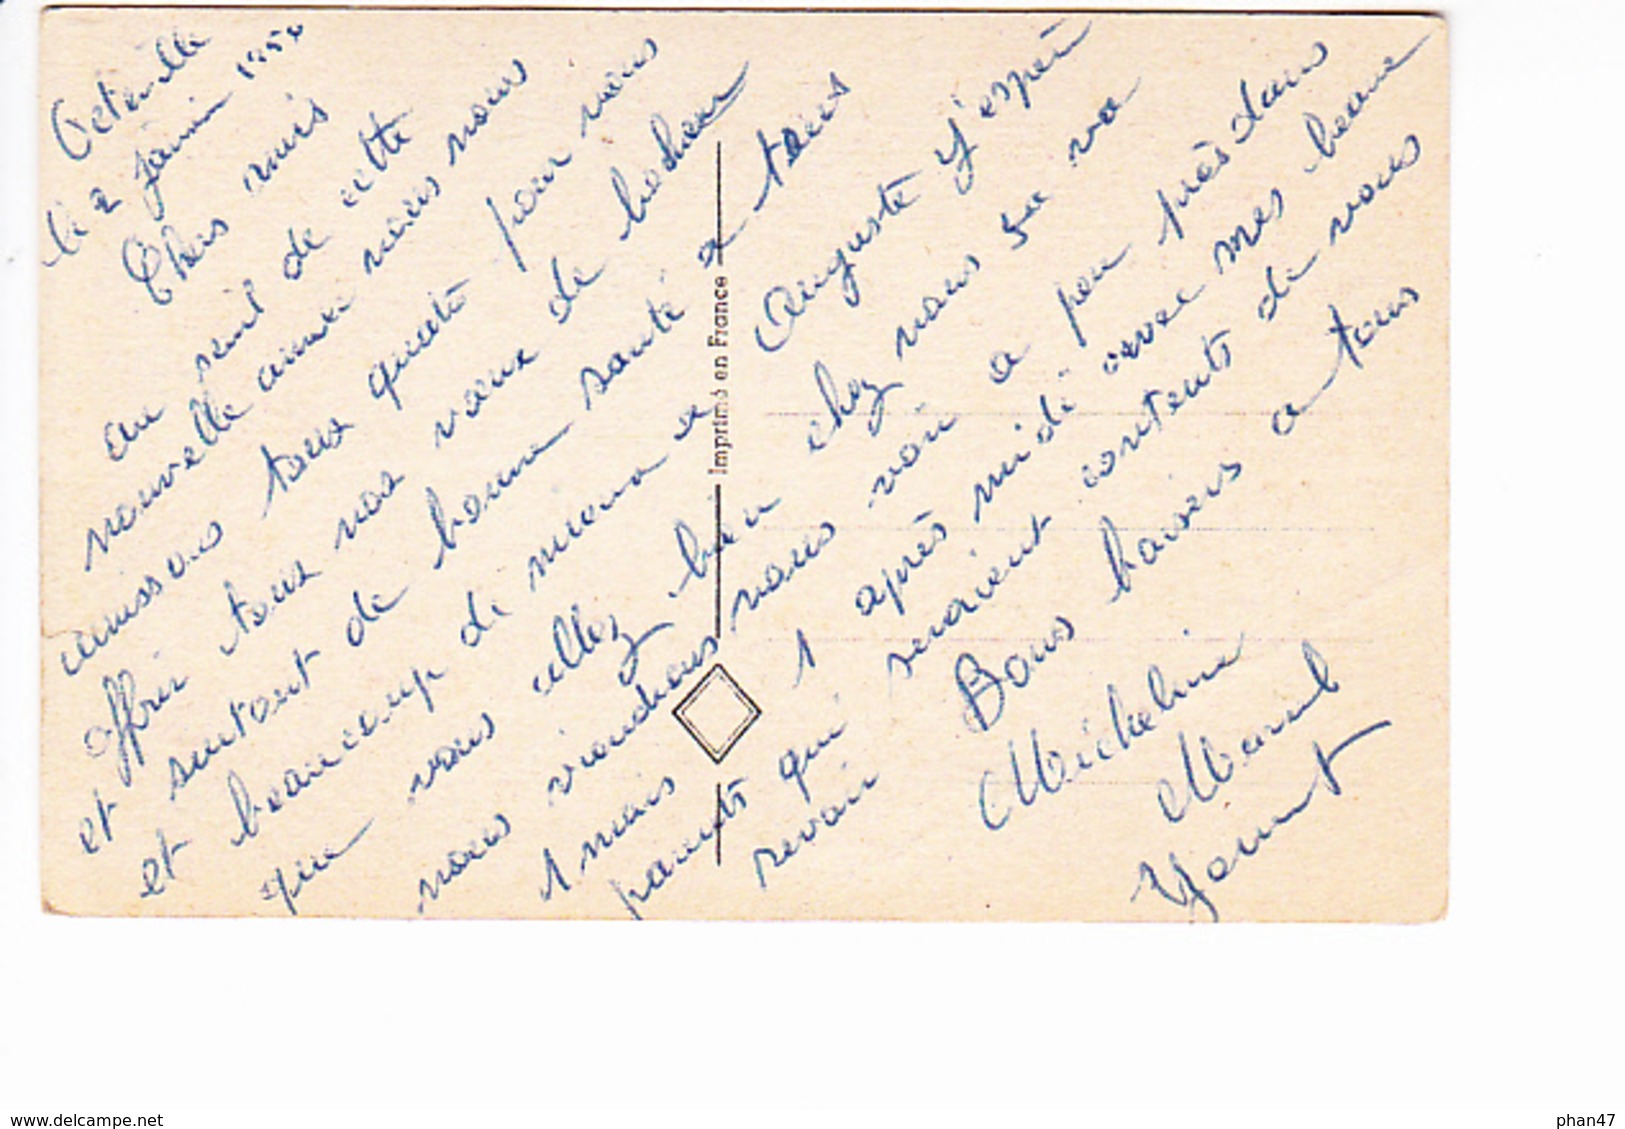 Octeville
le 2 janvier 1950
Chers amis
au seuil de cette
nouvelle année nous nous
unissons tous quatre pour vous
offrir tous nos voeux de bonheur
et surtout de bonne santé a tous
et beaucoup de a Auguste j'espère
que vous allez bien chez nous sa va
nous viendrons nous voir a peu près dans
1 mois 1 après midi avec mes beaux
parents qui seraient contents de vous
revoir Bons baisers a tous
Micheline
Marcel
Imprimé en France
phan47
www.delcampe.net